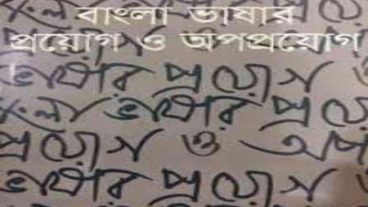 বাংলা ভাষার
প্রয়োগ ও অপপ্রয়োগ
ভাষার প্রয়োগ ও
বাংলা ভাষার প্রয়ো
প্রয়োগ ও অপ
ভাষার প্রয়োগ ও